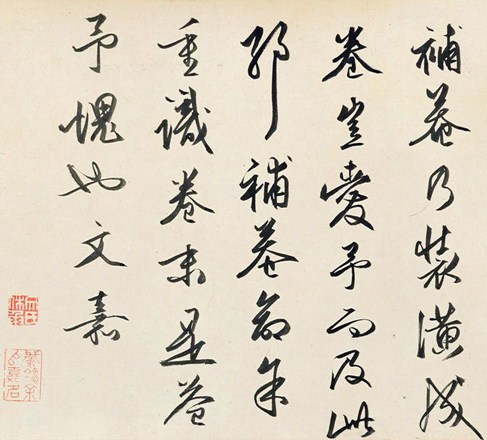 補菴乃裝潢成
卷豈愛予而及此
耶補菴命余
重識卷末是益
予愧也文嘉